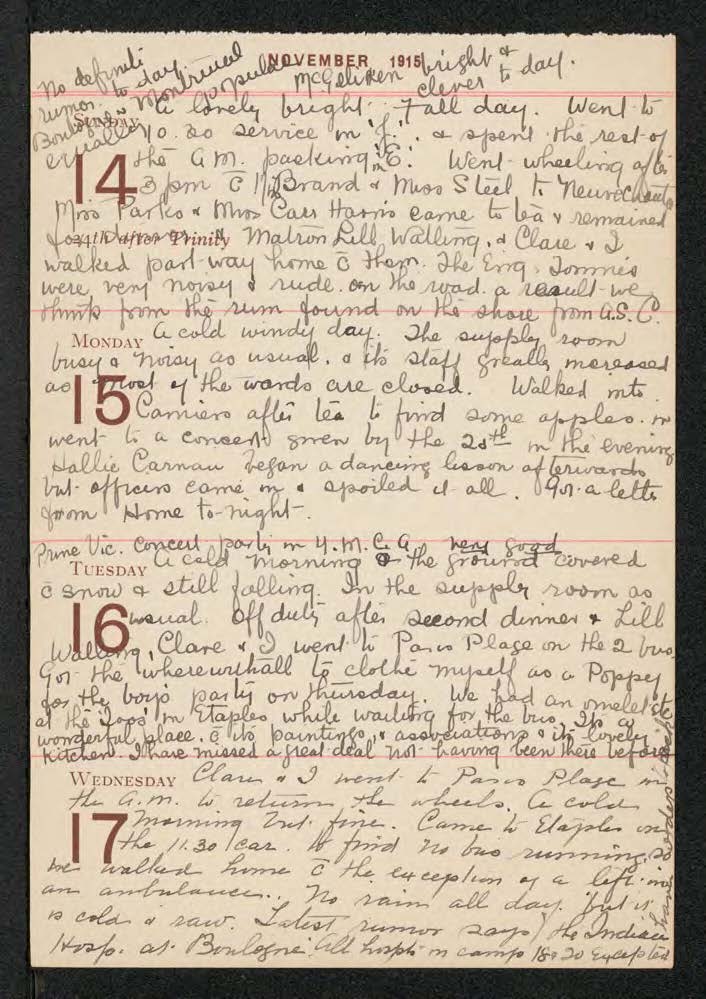 NOVEMBER 1915
No definite
rumor. to day.
Boulogne & Montreuil
equally popular
McGelliken bright &
clever to day.
SUNDAY
A lovely bright Fall day. Went to
10.30 service in "J". & spent the rest of
14 the A.M. packing in "E". Went wheeling after
3 pm c̄ Brand & Miss Steel to Neufchatel
Miss Parks & Miss Carr Harris came to tea & remained
24th after Trinity
for dinner. Matron Lill Watling, & Clare & I
walked part way home c̄ them. The Eng. Tommies
were very noisy & rude on the road. a result we
think from the rum found on the shore from A.S.C.
MONDAY
A cold windy day. The supply room
busy & noisy as usual. & its staff greatly increased
as most of the wards are closed. Walked into
15 Camiers after tea to find some apples. &
went to a concert given by the 20th in the evening
Hallie Carnau began a dancing lesson afterwards
but officers came in & spoiled it all. Got a letter
from Home to-night.
Prime Vic. concert party in Y.M.C.A. very good
TUESDAY
A cold morning & the ground covered
c̄ snow & still falling. In the supply room as
16 usual. Off duty after second dinner & Lill
Watling, Clare & I went to Paris Plage on the 2 bus,
Got the wherewithall to clothe myself as a Poppy
for the boys party on Thursday. We had an omelet
at the "Jos's" in Etaples while waiting for the bus. Its a
wonderful place. c̄ its paintings, & associations & its lovely
kitchen. I have missed a great deal not having been there before
WEDNESDAY
Clare & I went to Paris Plage in
the A.M. to return the wheels. A cold
17 morning but fine. Came to Etaples on
the 11.30 car. to find no bus running, so
we walked home c̄ the exception of a lift in
an ambulance. No rain all day. but it
is cold & raw. Latest rumor says the Indian
Hosp. at Boulogne. All hospts in camp 18 & 20 excepted
have orders